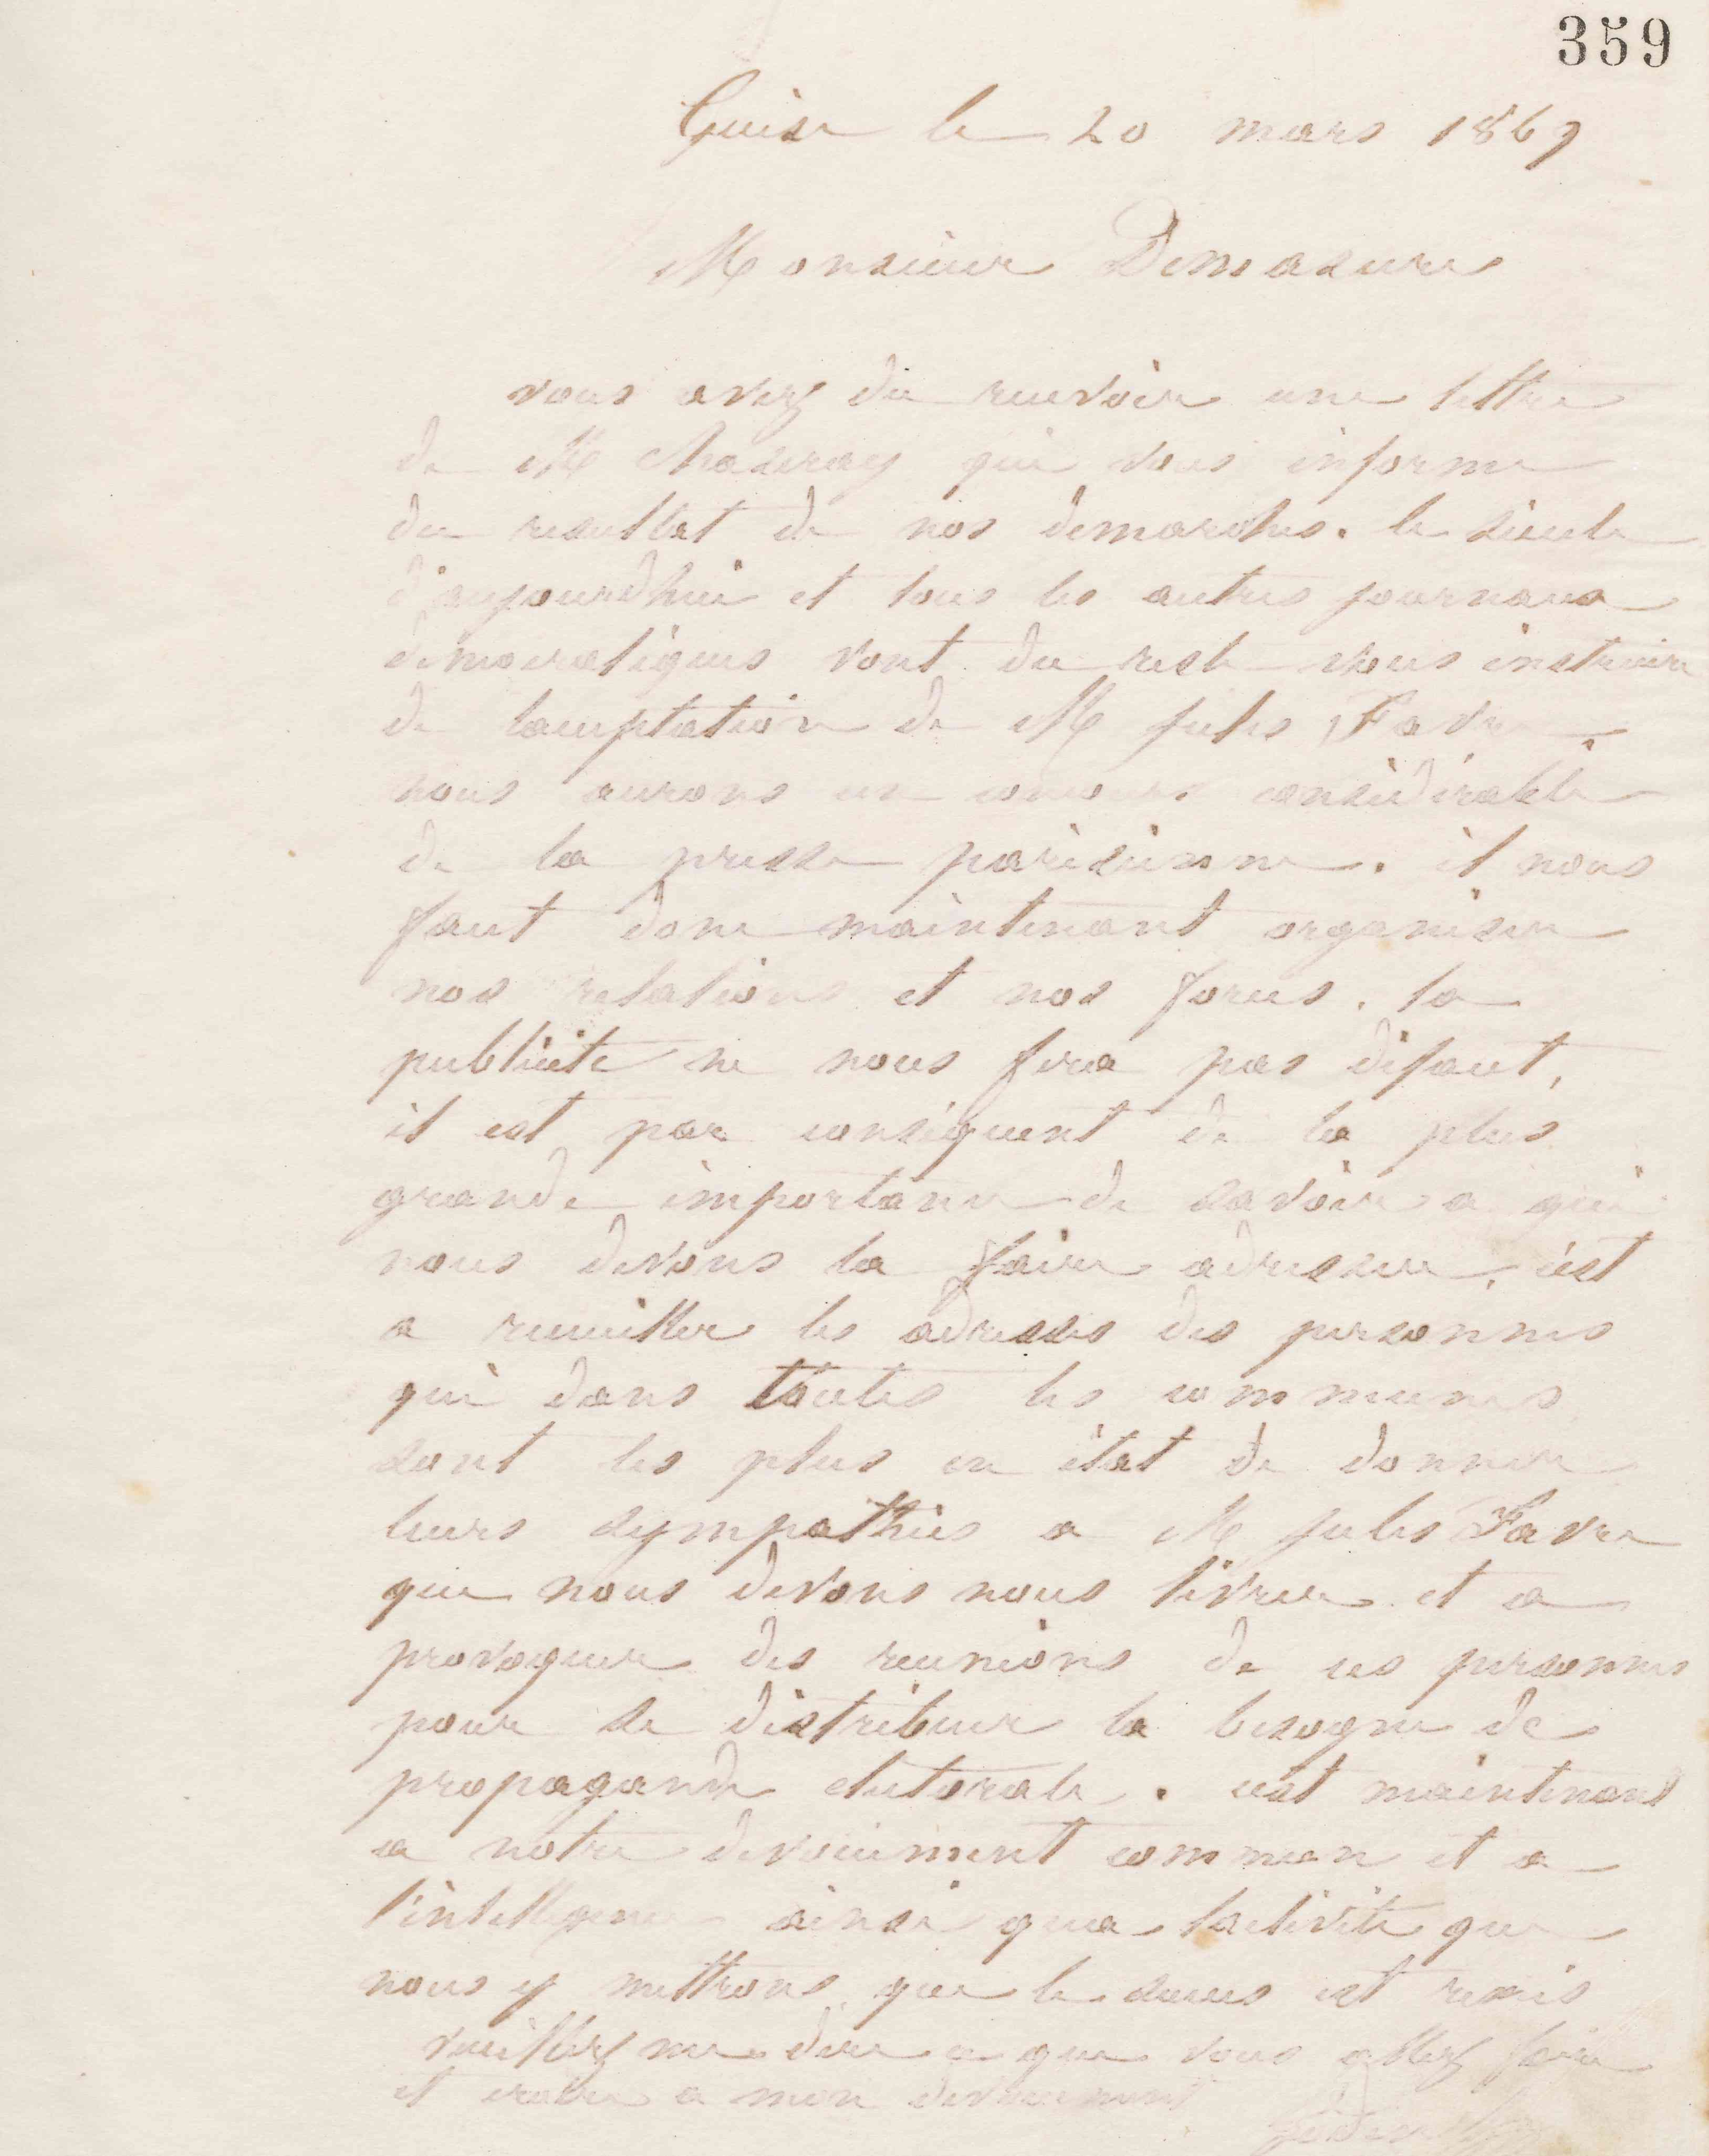 359
Guise le 20 mars 1869
Monsieur Demasure
vous avez du recevoir une lettre
de M qui vous informe
du resultat de nos demarches. le siecle
d'aujourdhui et tous les autres journaux
democratiques vont du reste vous instruire
de lacceptation de M jules Favre
nous aurons un concours considérable
de la presse parisienne. il nous
faut donc maintenant organiser
nos relations et nos forces. la
publicité ne nous fera pas défaut,
il est par conséquent de la plus
grande importance de savoir a qui
nous devons la faire adresser, cest
a recueillir les adresses des personnes
qui dans toutes les communes
sont les plus en état de donner
leurs sympathies a M jules Favre
que nous devons nous livrer et a
provoquer des reunions de ces personnes
pour se distribuer la besogne de
propagande electorale. cest maintenant
a notre devouement commun et a
l'intelligence ainsi qua lactivité que
nous y mettrons que le succes est remis
veuillez me dire ce que vous allez faire
et croire a mon devouement
Godin